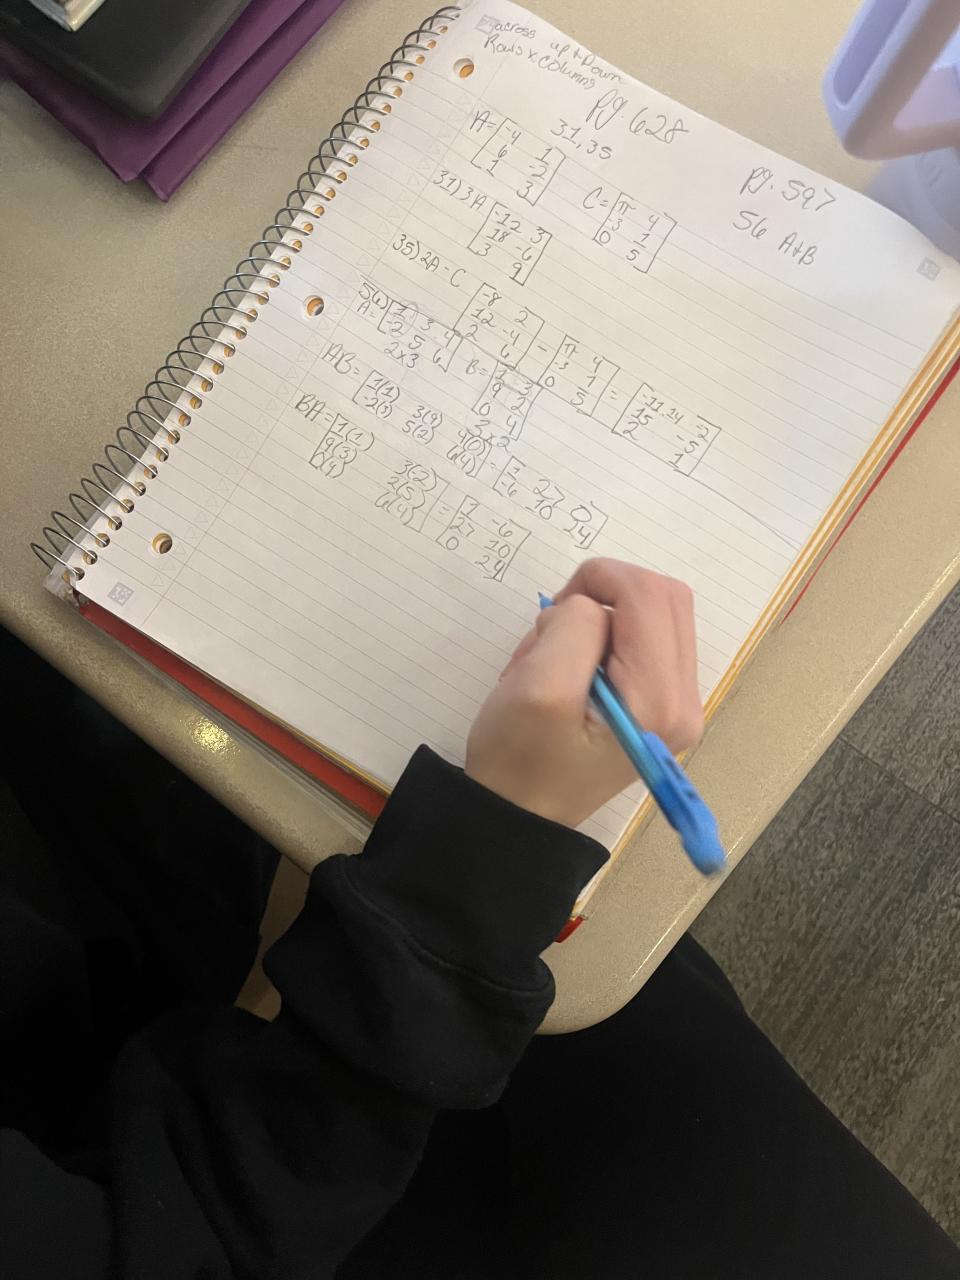 across up + Down
Rows x Columns
pg. 628
31, 35
pg. 597
56 A+B
A= [-4 1
6 -2
1 3]
C= [π 4
-3 1
0 5]
31) 3A [-12 3
18 -6
3 9]
35) 2A - C [-8 2
12 -4
2 6] - [π 4
-3 1
0 5] = [-11.14 -2
15 -5
2 1]
56) A= [1 3 4
-2 5 6]
2x3
B= [1 -3
9 2
0 4]
3x2
AB= [1(1) 3(9)
-2(3) 5(2) 6(4)] = [1 27 0
-6 10 24]
BA= [1(1) 3(-2)
9(3) 2(5)
6(4)] = [1 -6
27 10
0 24]